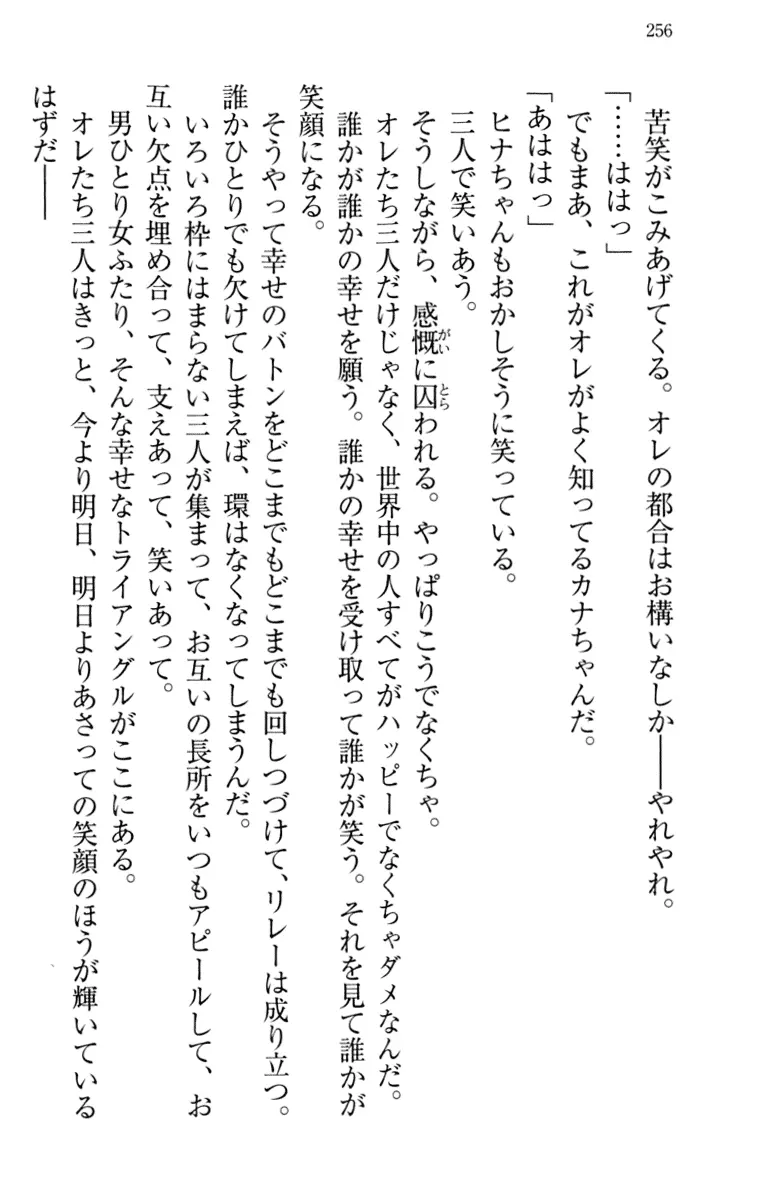 256
苦笑がこみあげてくる。オレの都合はお構いなしか――やれやれ。
「……ははっ」
でもまあ、これがオレがよく知ってるカナちゃんだ。
「あははっ」
ヒナちゃんもおかしそうに笑っている。
三人で笑いあう。
そうしながら、感慨に囚われる。やっぱりこうでなくちゃ。
オレたち三人だけじゃなく、世界中の人すべてがハッピーでなくちゃダメなんだ。
誰かが誰かの幸せを願う。誰かの幸せを受け取って誰かが笑う。それを見て誰かが
笑顔になる。
そうやって幸せのバトンをどこまでもどこまでも回しつづけて、リレーは成り立つ。
誰かひとりでも欠けてしまえば、環はなくなってしまうんだ。
いろいろ枠にはまらない三人が集まって、お互いの長所をいつもアピールして、お
互い欠点を埋め合って、支えあって、笑いあって。
男ひとり女ふたり、そんな幸せなトライアングルがここにある。
オレたち三人はきっと、今より明日、明日よりあさっての笑顔のほうが輝いている
はずだ――